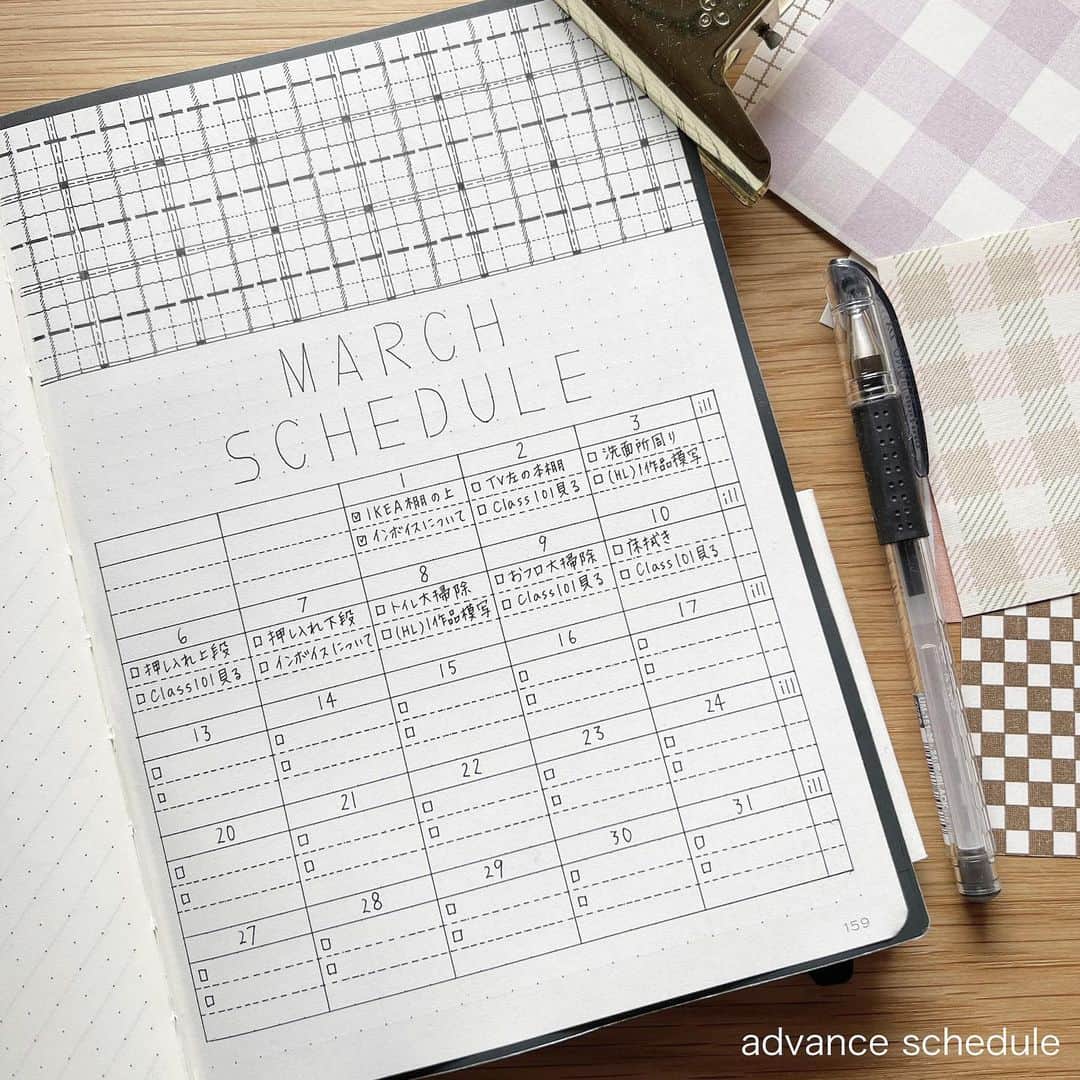 MARCH
SCHEDULE
1
2
3
ill
☑ IKEA棚の上
☑ インボイスについて
□ TV左の本棚
□ Class101見る
□ 洗面所周り
□ (HL)1作品模写
6
7
8
9
10
ill
□ 押し入れ上段
□ Class101見る
□ 押し入れ下段
□ インボイスについて
□ トイレ大掃除
□ (HL)1作品模写
□ おフロ大掃除
□ Class101見る
□ 床拭き
□ Class101見る
13
14
15
16
17
ill
20
21
22
23
24
ill
27
28
29
30
31
ill
159
advance schedule